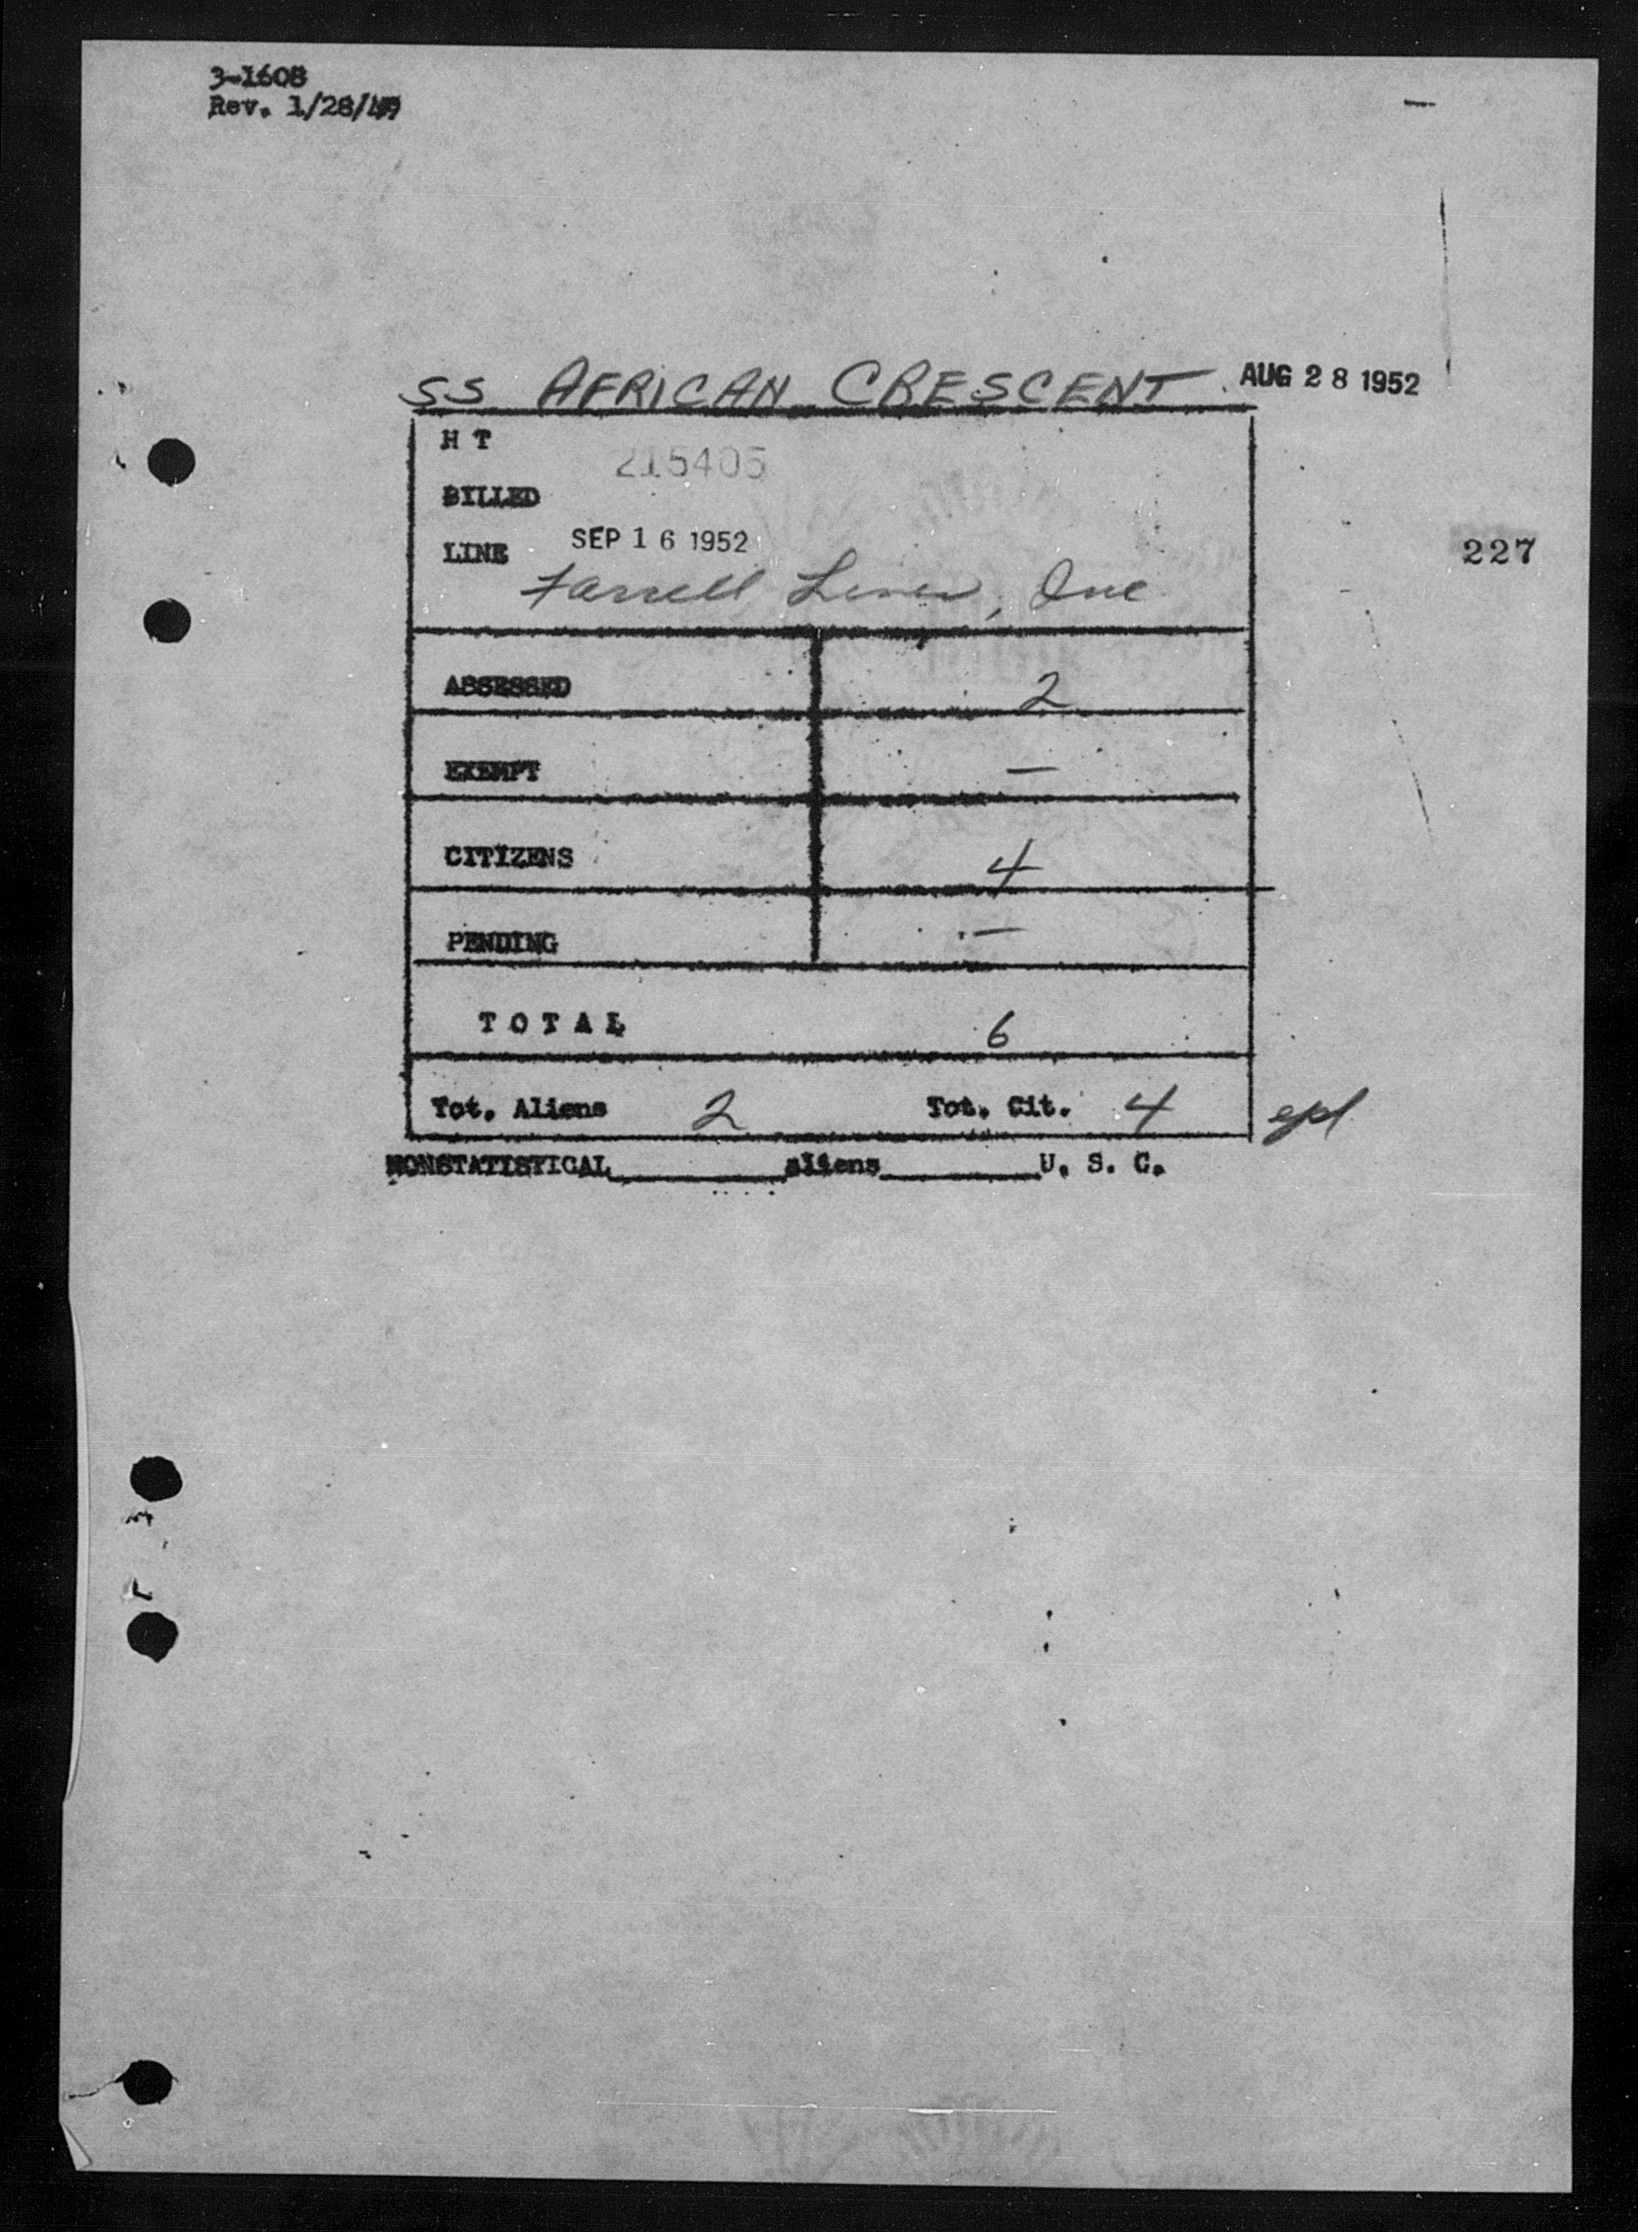 3-1608
Rev. 1/28/49
SS AFRICAN CRESCENT AUG 28 1952
H T
215405
BILLED
SEP 16 1952
LINE
Farrell Lines, Inc
227
ASSESSED 2
EXEMPT —
CITIZENS 4
PENDING —
TOTAL 6
Tot. Aliens 2 Tot. Cit. 4
NONSTATISTICAL______aliens______U. S. C.